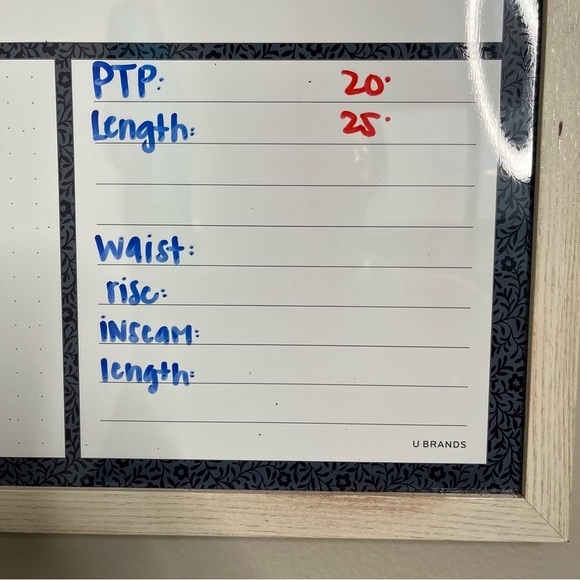 PTP: 20"
Length: 25"
Waist:
rise:
inseam:
length:
U BRANDS